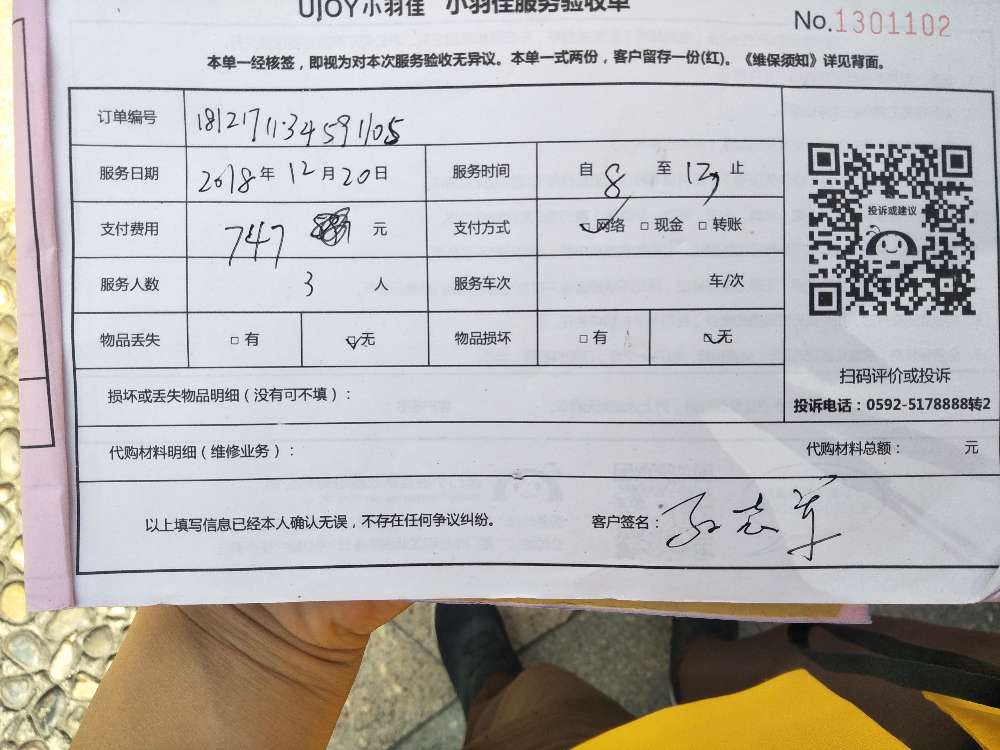 UJOY小羽佳 小羽佳服务验收单
No.1301102
本单一经核签，即视为对本次服务验收无异议。本单一式两份，客户留存一份(红)。《维保须知》详见背面。
订单编号 1812171134591105
服务日期 2018年12月20日 服务时间 自8至12止
支付费用 747 元 支付方式 ☑网络 □现金 □转账
服务人数 3 人 服务车次 车/次
物品丢失 □有 ☑无 物品损坏 □有 ☑无
损坏或丢失物品明细（没有可不填）：
代购材料明细（维修业务）： 代购材料总额： 元
以上填写信息已经本人确认无误，不存在任何争议纠纷。 客户签名：
投诉或建议
扫码评价或投诉
投诉电话：0592-5178888转2